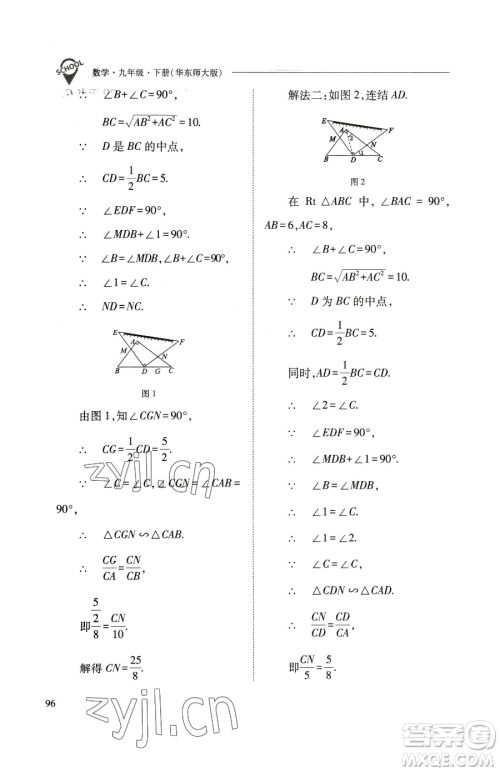 SCHOOL
数学·九年级·下册(华东师大版)
∴ ∠B+∠C=90°,
BC=√AB²+AC²=10.
∵ D是BC的中点,
∴ CD=1/2BC=5.
∵ ∠EDF=90°,
∴ ∠MDB+∠1=90°.
∵ ∠B=∠MDB,∠B+∠C=90°,
∴ ∠1=∠C.
∴ ND=NC.
E
A
F
M
N
B
D
G
C
图1
由图1,知∠CGN=90°,
∴ CG=1/2CD=5/2.
∵ ∠C=∠C,∠CGN=∠CAB=
90°,
∴ △CGN∽△CAB.
∴ CG/CA=CN/CB,
即(5/2)/8=CN/10.
解得CN=25/8.
96
解法二:如图2,连结AD.
E
A
F
M
2
N
1
B
D
C
图2
在Rt△ABC中,∠BAC=90°,
AB=6,AC=8,
∴ ∠B+∠C=90°,
BC=√AB²+AC²=10.
∵ D为BC的中点,
∴ CD=1/2BC=5.
同时,AD=1/2BC=CD.
∴ ∠2=∠C.
∵ ∠EDF=90°,
∴ ∠MDB+∠1=90°.
∵ ∠B=∠MDB,∠B+∠C=90°,
∴ ∠1=∠C.
∴ ∠1=∠2.
∴ △CDN∽△CAD.
∴ CN/CD=CD/CA,
即CN/5=5/8.
zyjl.cn
zyjl.cn
答案圈
MXQE.COM